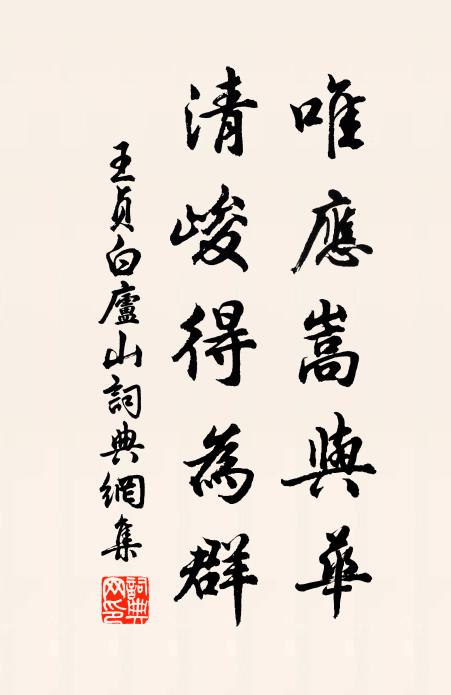 唯應嵩與華
清峻得為群
王貞白廬山詞典網集
詞典網印